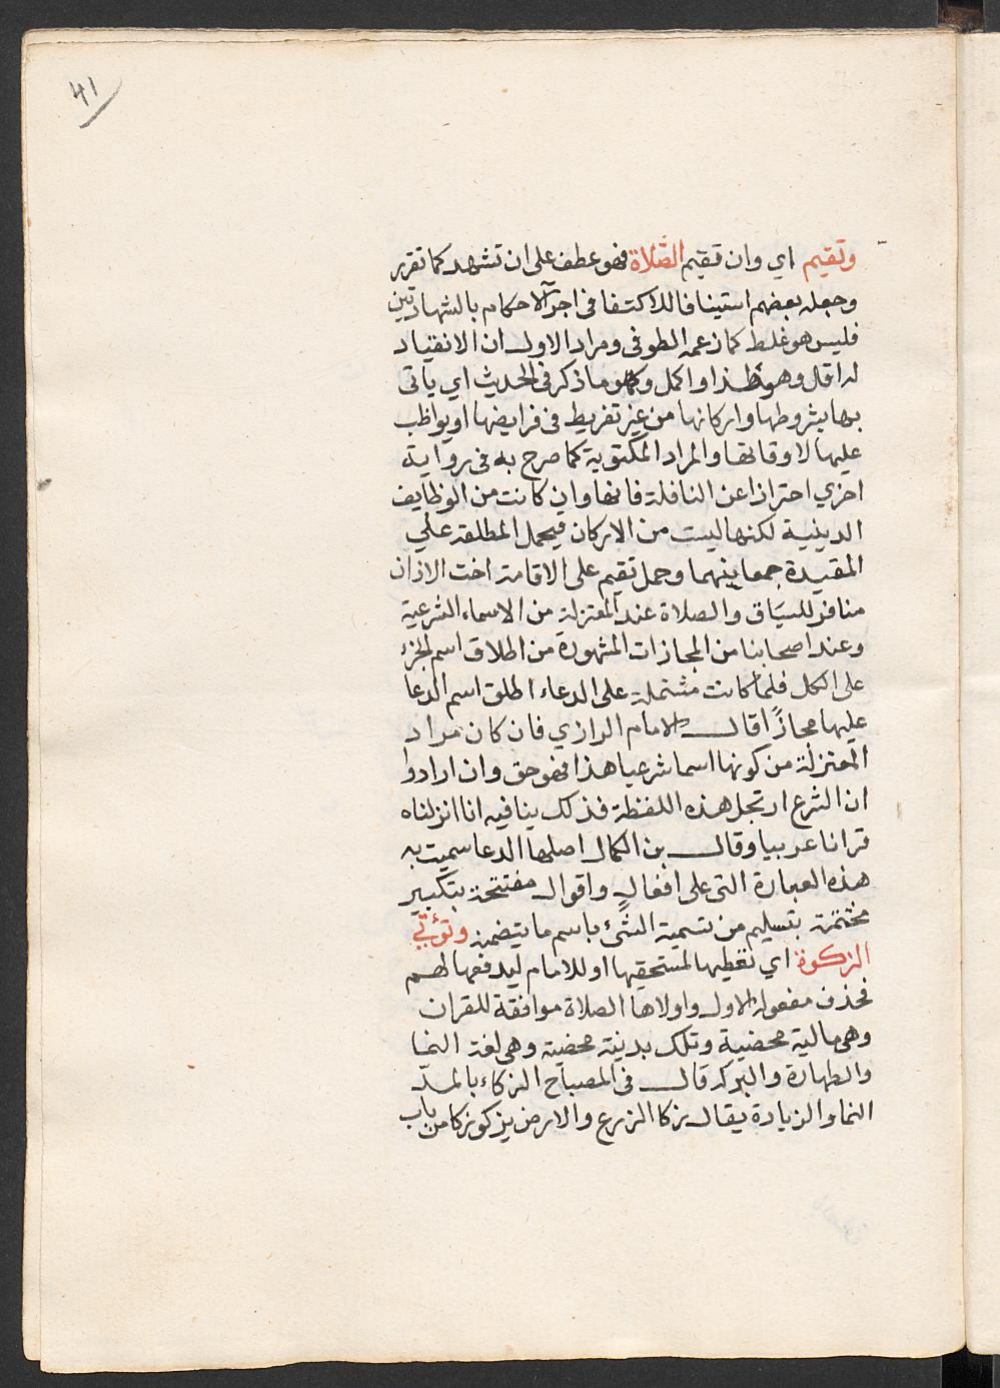 41
وتقيم اي وان تقيم الصلاة فهو عطف على ان تشهد كما تقرر
وجعله بعضهم استينافا للاكتفا في اجرآ الاحكام بالشهادتين
فليس هو غلط كما زعمه الطوفي ومراد الاول ان الانقياد
له اقل وهو هذا او اكمل وهو ما ذكر في الحديث اي ياتى
بها بشروطها واركانها من غير تفريط فى فرايضها او يواظب
عليها لاوقاتها والمراد المكتوبة كما صرح به فى رواية
اخري احترازا عن النافلة فانها وان كانت من الوظايف
الدينية لكنها ليست من الاركان فيحمل المطلقة علي
المقيدة جمعا بينهما وحمل تقيم على الاقامة اخت الاذان
منافر للسياق والصلاة عند المعتزلة من الاسماء الشرعية
وعند اصحابنا من المجازات المشهورة من اطلاق اسم الجزء
على الكل فلما كانت مشتملة على الدعاء اطلق اسم الدعا
عليها مجازًا قال الامام الرازي فان كان مراد
المعتزلة من كونها اسما شرعيا هذا فهو حق وان ارادوا
ان الشرع ارتجل هذه اللفظة فذلك ينافيه انا انزلناه
قرانا عربيا وقال بن الكمال اصلها الدعا سميت به
هذه العبارة التى على افعالٍ واقوال مفتتحة بتكبير
مختتمة بتسليم من تسمية الشئ باسم ما يتضمنه وتؤتي
الزكوة اي تعطيها لمستحقيها او للامام ليدفعها لهم
فحذف مفعوله الاول واولاها الصلاة موافقة للقران
وهى مالية محضية وتلك بدنية محضة وهى لغة النما
والطهارة والبركة قال فى المصباح الزكاء بالمد
النما والزيادة يقال زكا الزرع والارض يزكو زكا من باب